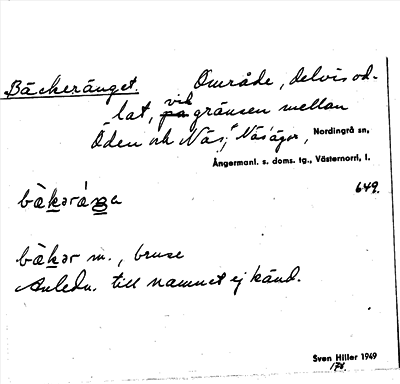 Bäckeränget. Område, delvis od-
lat, vid gränsen mellan
Öden och Näs, Näs' ägor, Nordingrå sn,
Ångermanl. s. doms. tg., Västernorrl. l.
649.
bäkar m., bruse
Anledn. till namnet ej känd.
Sven Hiller 1949